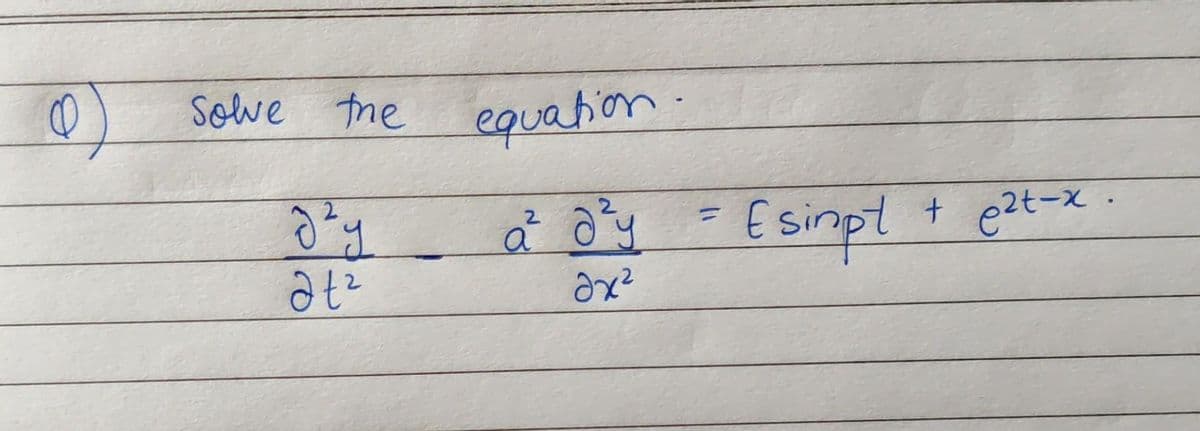 Q) Solve the equation.
∂²y/∂t² - a² ∂²y/∂x² = E sinpt + e^{2t-x}.